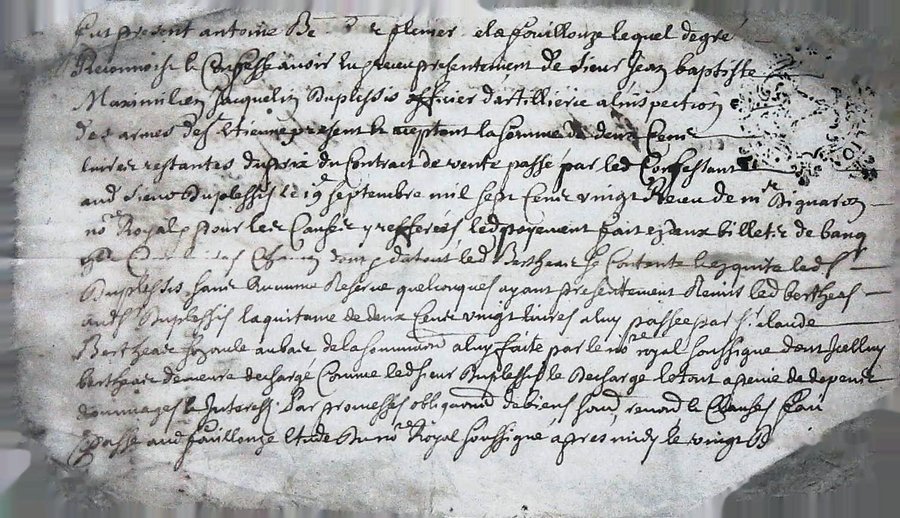 fut present antoine Be flemer de la fouillouze lequel de gré
Reconnoist & Confesse avoir eu & receu presentement de sieur Jean baptiste
Maximilien Jacquelin Duplessis officier dartillerie a linspection
des armes de st Etienne present & acceptant la somme de deux Cens
livres restantes du prix du Contract de vente passé par led Confessant
aud sieur Duplessis le 19e septembre mil sept Cens vingt Receu de mr Pignaron
nore Royal & pour les Causes y refferées led payement fait ez deux billets de banq
de Cent livres Chacun dont & du tout led Berthear se Contente & en quite led sr
Duplessis sans Aucune Reserve quelconques ayant presentement Remis led berthear
aud sr Duplessis la quitance de deux Cens vingt livres a luy passée par sr Claude
Berthear au bas de la sommation a luy faite par le nore royal soussigné dont Icelluy
berthear demeure dechargé Comme led sieur Duplessis le decharge le tout a peine de depens
dommages & Interests Par promesses obligations de biens soub renon & Clauses fait
& passé aud fouillouze Etude du nore Royal soussigné apres midy le vingt